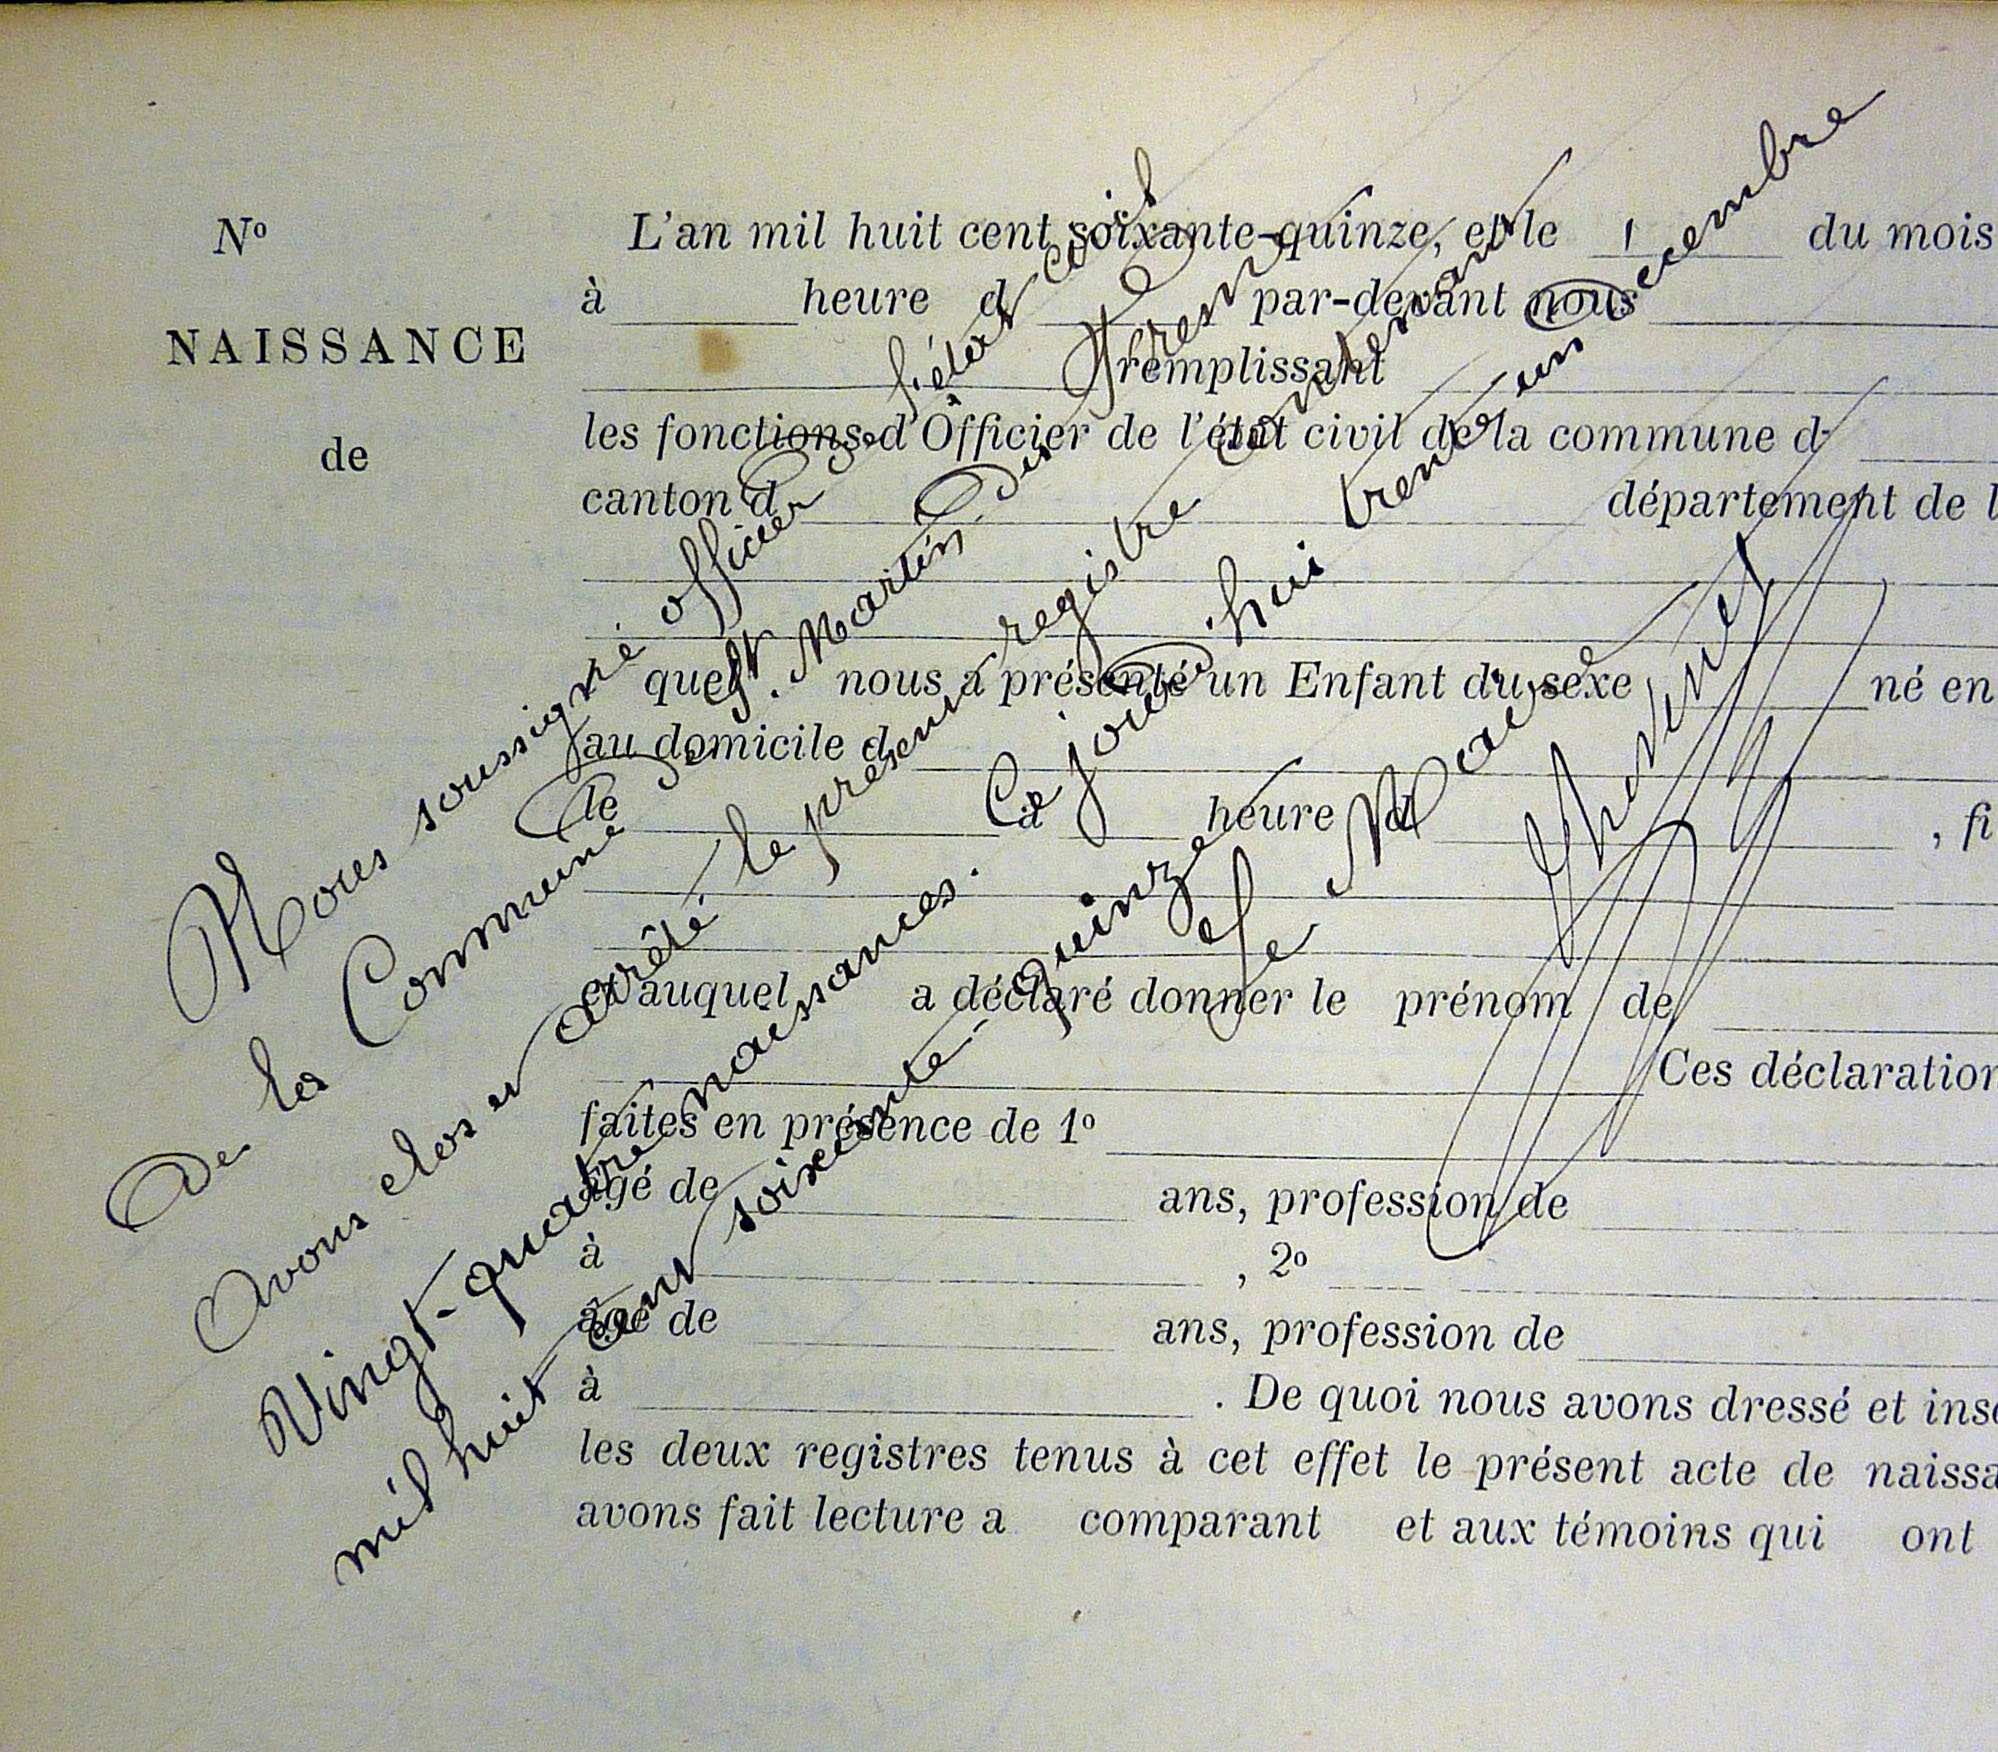 Nº
NAISSANCE
de
L'an mil huit cent soixante-quinze, et le 1 du mois
à heure d par-devant nous
remplissant
les fonctions d'Officier de l'état civil de la commune d
canton d département de l
quel nous a présenté un Enfant du sexe né en
au domicile d
le à heure d , fi
et auquel a déclaré donner le prénom de
Ces déclaration
faites en présence de 1º
âgé de ans, profession de
à , 2º
âgé de ans, profession de
à . De quoi nous avons dressé et insc
les deux registres tenus à cet effet le présent acte de naissa
avons fait lecture a comparant et aux témoins qui ont
Nous soussigné officier de l'état civil
De la Commune de St. Martin Du Fresne
Avons clos et arrêté le présent registre contenant
Vingt-quatre naissances. Ce jourd'hui trente un Décembre
mil huit cent soixante-quinze
Le Maire